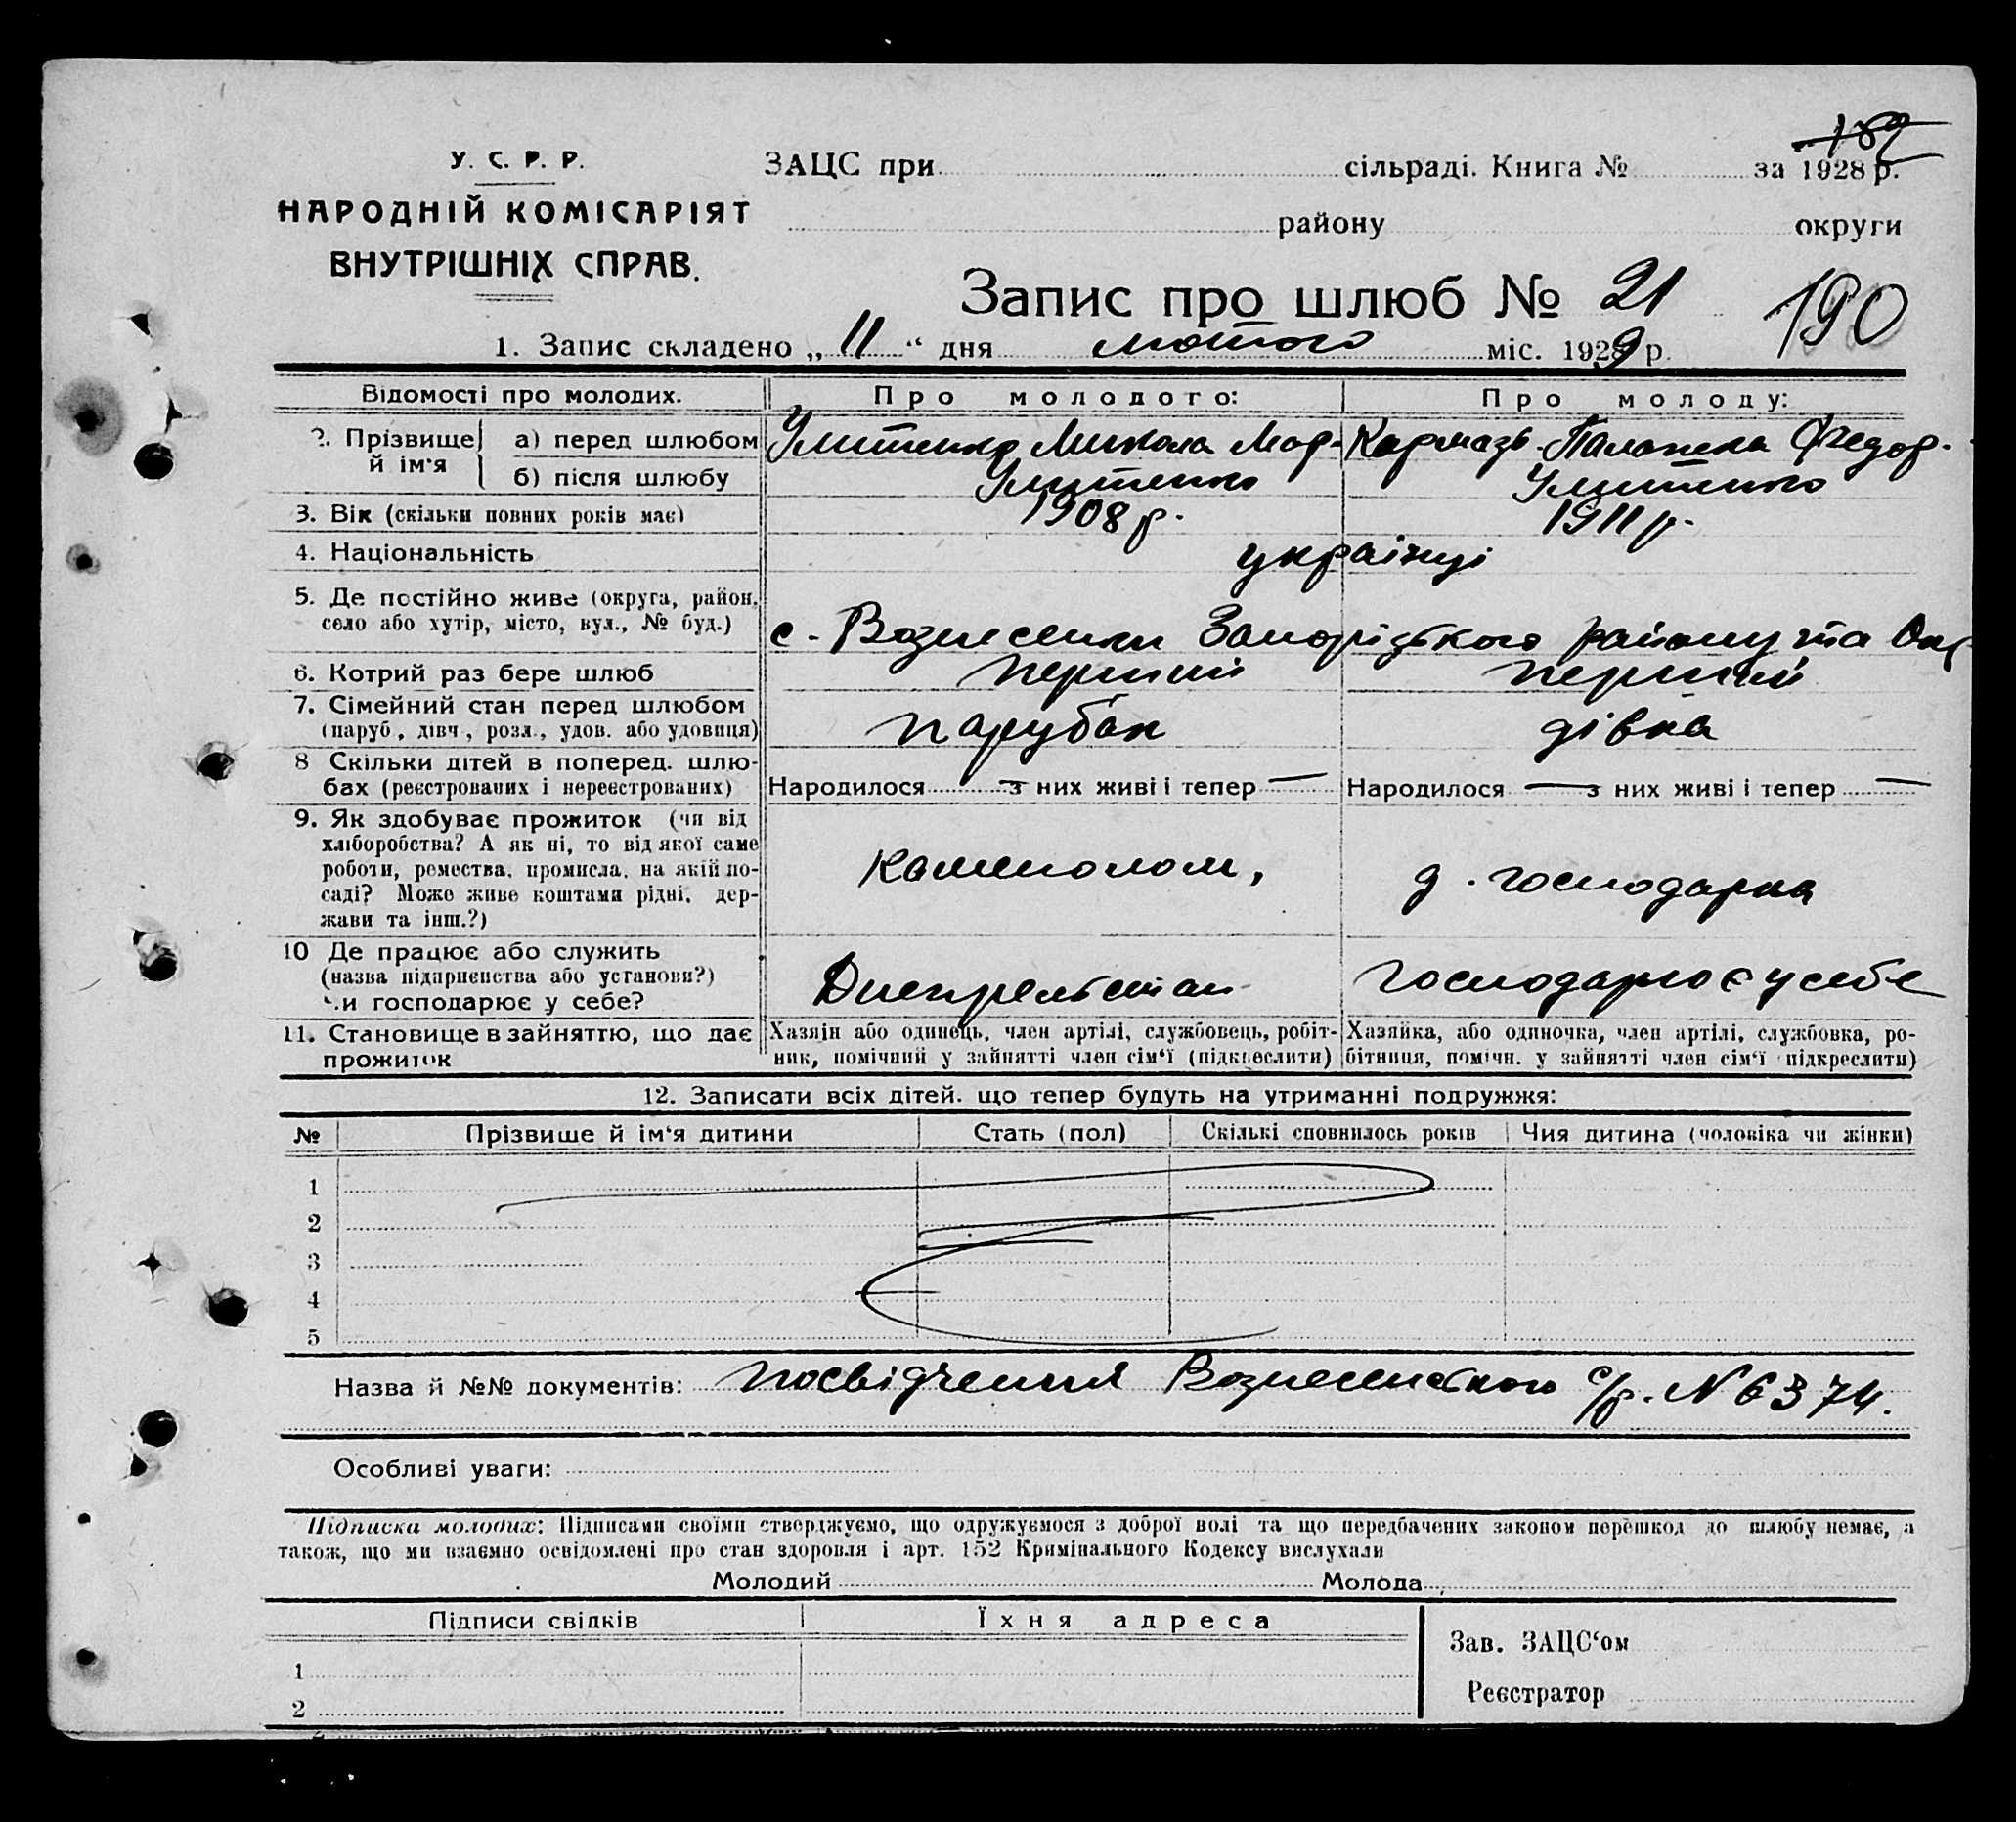 189
У. С. Р. Р.
НАРОДНІЙ КОМІСАРІЯТ
ВНУТРІШНІХ СПРАВ.
ЗАЦС при сільраді. Книга № за 1928 р.
району округи
Запис про шлюб № 21
190
1. Запис складено „ 11 “ дня лютого міс. 1929 р.
Відомості про молодих. Про молодого: Про молоду:
2. Прізвище й ім'я а) перед шлюбом Улитенко Микола Мар- Кармазь Палажка Федор.
б) після шлюбу Улитенко Улитенко
3. Вік (скільки повних років має) 1908 р. 1911 р.
4. Національність українці
5. Де постійно живе (округа, район,
село або хутір, місто, вул., № буд.) с. Вознесенки Запорізького району та Окр
6. Котрий раз бере шлюб перший перший
7. Сімейний стан перед шлюбом
(паруб., дівч., розл., удов. або удовиця) парубак дівка
8 Скільки дітей в поперед. шлю-
бах (реєстрованих і нереєстрованих) Народилося — з них живі і тепер — Народилося — з них живі і тепер —
9. Як здобуває прожиток (чи від
хліборобства? А як ні, то від якої саме
роботи, ремества, промисла, на якій по-
саді? Може живе коштами рідні, дер-
жави та інш.?) каменолом, д. господарка
10 Де працює або служить
(назва підприємства або установи?)
Чи господарює у себе? Днепрельстан господарює у себе
11. Становище в зайняттю, що дає
прожиток
Хазяїн або одинець, член артілі, службовець, робіт-
ник, помічний у зайнятті член сім'ї (підкреслити)
Хазяйка, або одиночка, член артілі, службовка, ро-
бітниця, помічн. у зайнятті член сім'ї підкреслити)
12. Записати всіх дітей. що тепер будуть на утриманні подружжя:
№ Прізвище й ім'я дитини Стать (пол) Скількі сповнилось років Чия дитина (чоловіка чи жінки)
1
2
3
4
5
Назва й №№ документів: посвідчення Вознесенського с/р. N 6374.
Особливі уваги:
Підписка молодих: Підписами своїми стверджуємо, що одружуємося з доброї волі та що передбачених законом перешкод до шлюбу немає, а
також, що ми взаємно освідомлені про стан здоровля і арт. 152 Кримінального Кодексу вислухали
Молодий Молода
Підписи свідків Їхня адреса
Зав. ЗАЦС'ом
1
Реєстратор
2